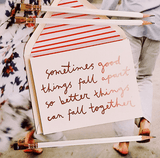 sometimes good
things fall apart
so better things
can fall together